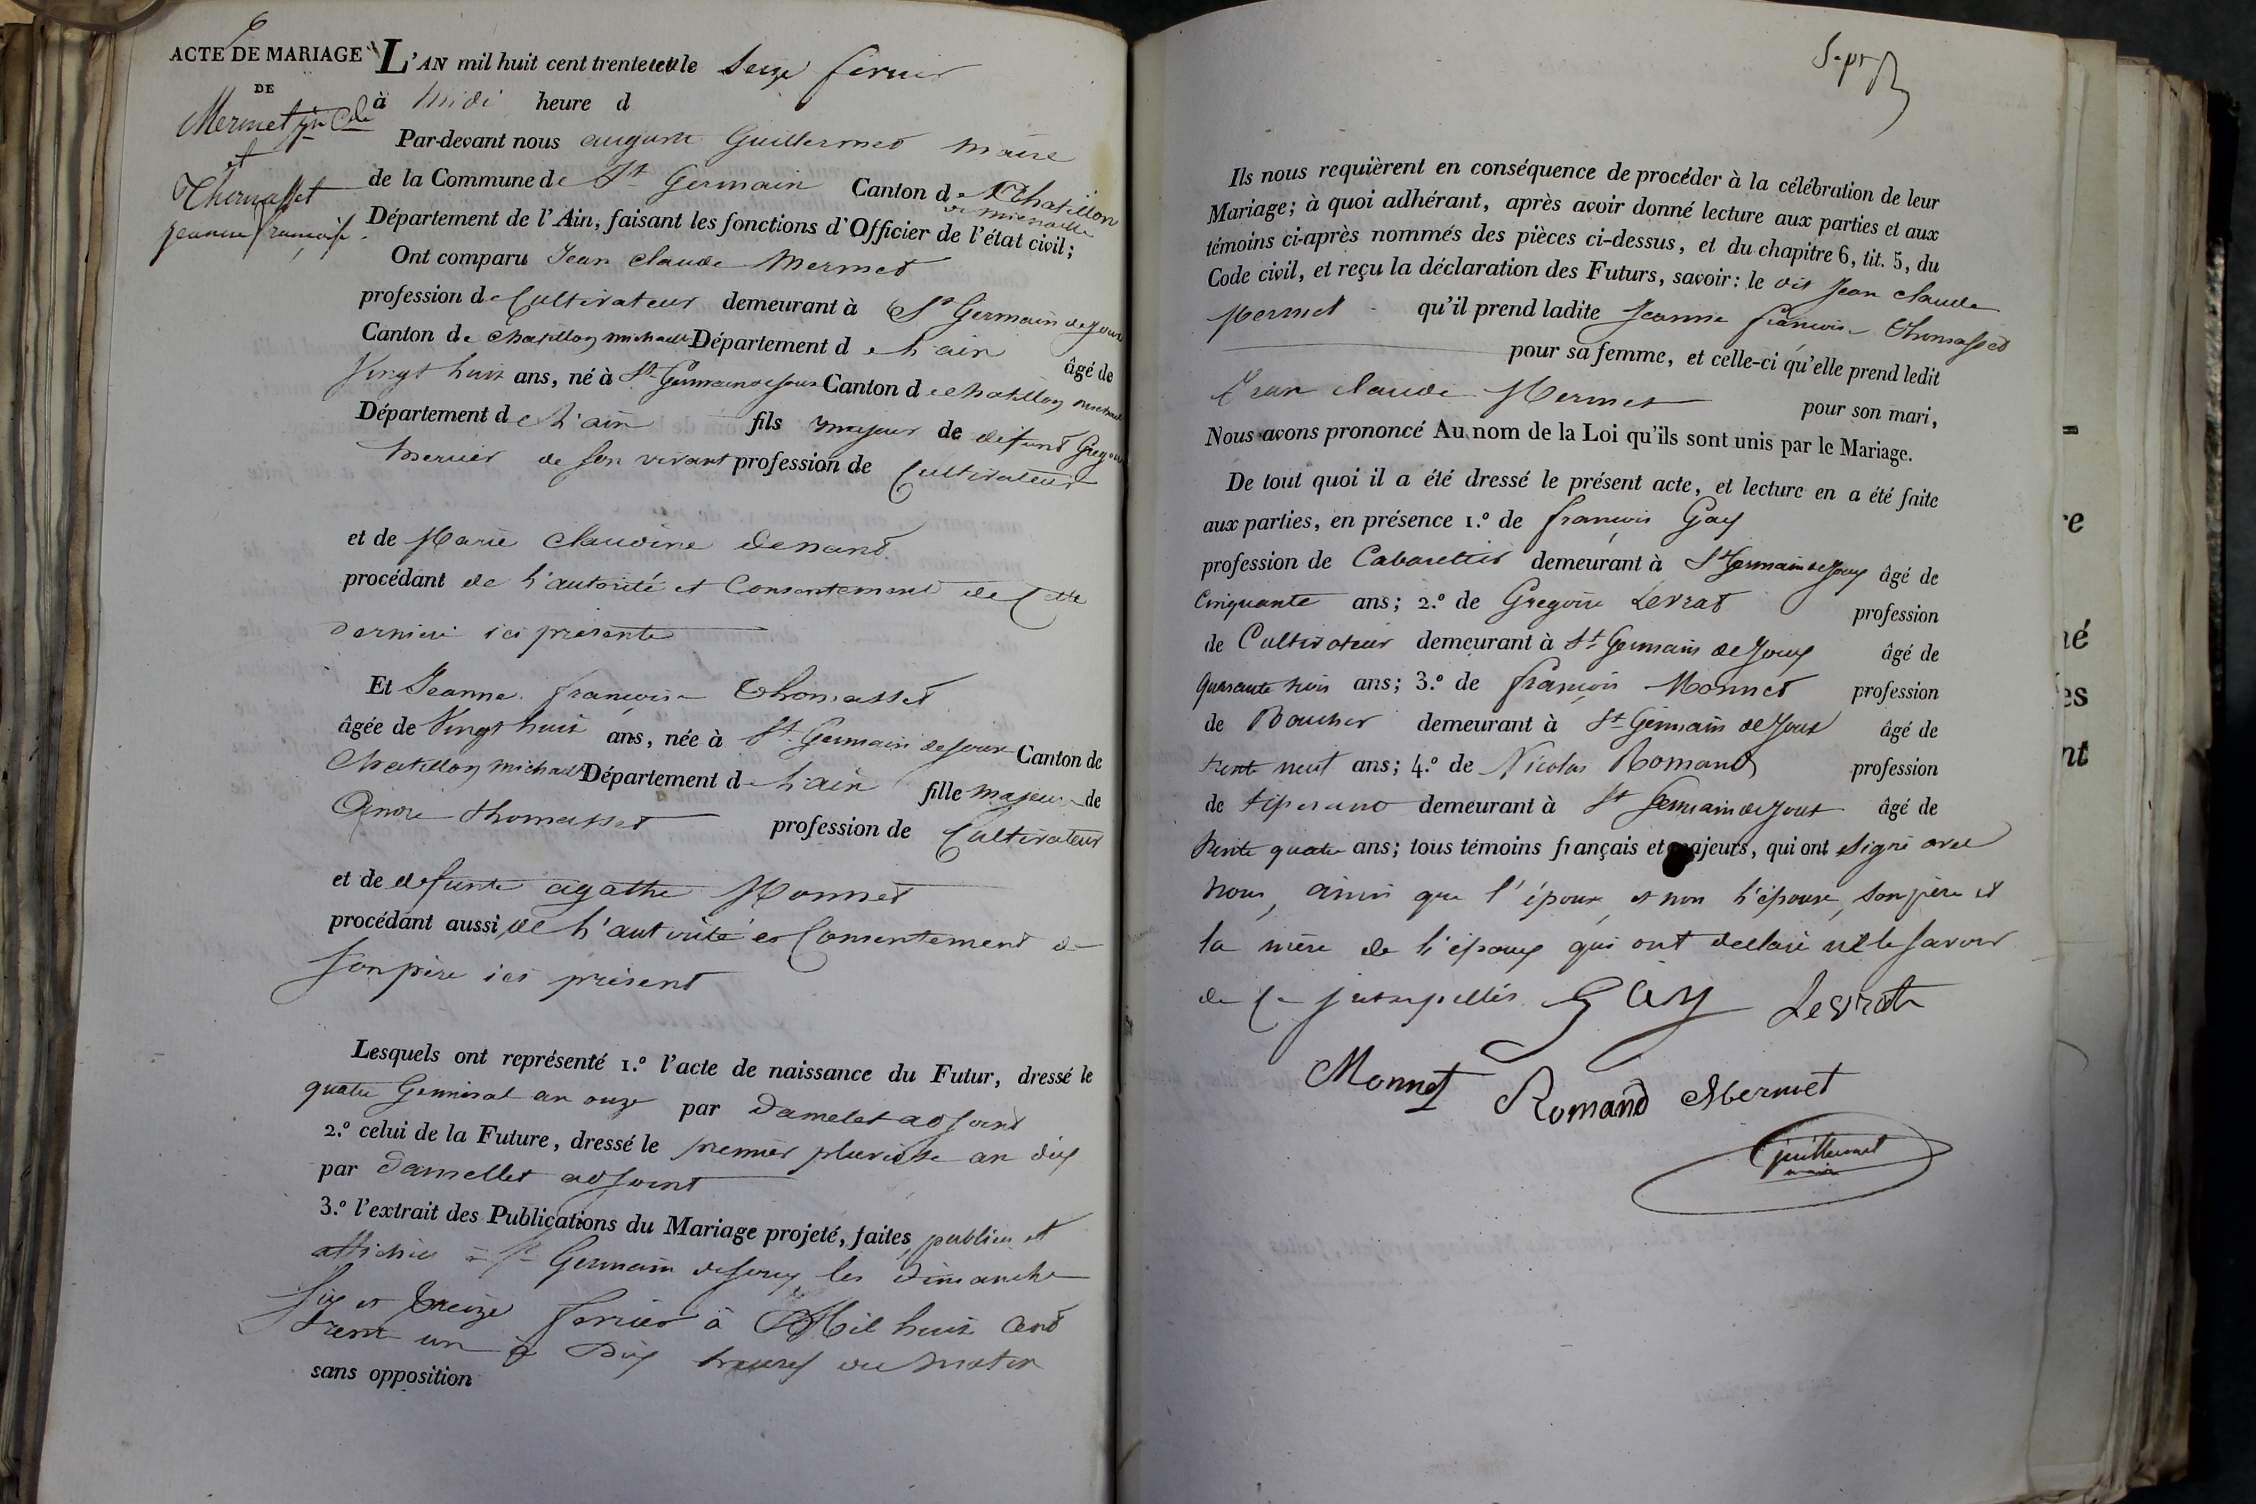 6
ACTE DE MARIAGE
DE
Mermet jn Cde
et
Thomasset
jeanne françoise
L'AN mil huit cent trente et un le Seize fevrier
à Midi heure d
Par-devant nous auguste Guillermet Maire
de la Commune de St Germain Canton de Chatillon
de michaille
Département de l'Ain, faisant les fonctions d'Officier de l'état civil;
Ont comparu Jean claude Mermet
profession de Cultivateur demeurant à St Germain de Joux
Canton de chatillon michaille Département de l'ain âgé de
Vingt huit ans, né à St Germain de Joux Canton de chatillon michaille
Département de l'ain fils majeur de défunt Gregoire
Mermet de son vivant profession de Cultivateur
et de Marie Claudine Denant
procédant de l'autorité et Consentement de Cette
derniere ici présente
Et Jeanne françoise Thomasset
âgée de Vingt huit ans, née à St Germain de Joux Canton de
Chatillon michaille Département de l'ain fille majeure de
André thomasset profession de Cultivateur
et de defunte agathe Monnet
procédant aussi de l'autorité et Consentement de
son père ici présent
Lesquels ont représenté 1.º l'acte de naissance du Futur, dressé le
quatre Germinal an onze par Damelet adjoint
2.º celui de la Future, dressé le premier pluviose an dix
par Damellet adjoint
3.º l'extrait des Publications du Mariage projeté, faites, publiées et
affichées à St Germain de Joux, les dimanche
Six et treize fevrier à Mil huit Cent
trente un à Dix heures du Matin
sans opposition
Sept
Ils nous requièrent en conséquence de procéder à la célébration de leur
Mariage; à quoi adhérant, après avoir donné lecture aux parties et aux
témoins ci-après nommés des pièces ci-dessus, et du chapitre 6, tit. 5, du
Code civil, et reçu la déclaration des Futurs, savoir: le dit Jean claude
Mermet qu'il prend ladite Jeanne françoise Thomasset
pour sa femme, et celle-ci qu'elle prend ledit
Jean claude Mermet pour son mari,
Nous avons prononcé Au nom de la Loi qu'ils sont unis par le Mariage.
De tout quoi il a été dressé le présent acte, et lecture en a été faite
aux parties, en présence 1.º de françois Gay
profession de Cabaretier demeurant à St Germain de Joux âgé de
Cinquante ans; 2.º de Gregoire Levrat profession
de Cultivateur demeurant à St Germain de Joux âgé de
quarante trois ans; 3.º de françois Monnet profession
de Boucher demeurant à St Germain de Joux âgé de
trente neuf ans; 4.º de Nicolas Romand profession
de tisserand demeurant à St Germain de Joux âgé de
trente quatre ans; tous témoins français et majeurs, qui ont signé avec
nous, ainsi que l'époux, et non l'épouse, son père et
la mère de l'époux qui ont déclaré ne le savoir
de ce
Gay Levrat
Monnet Romand Mermet
Guillermet
maire